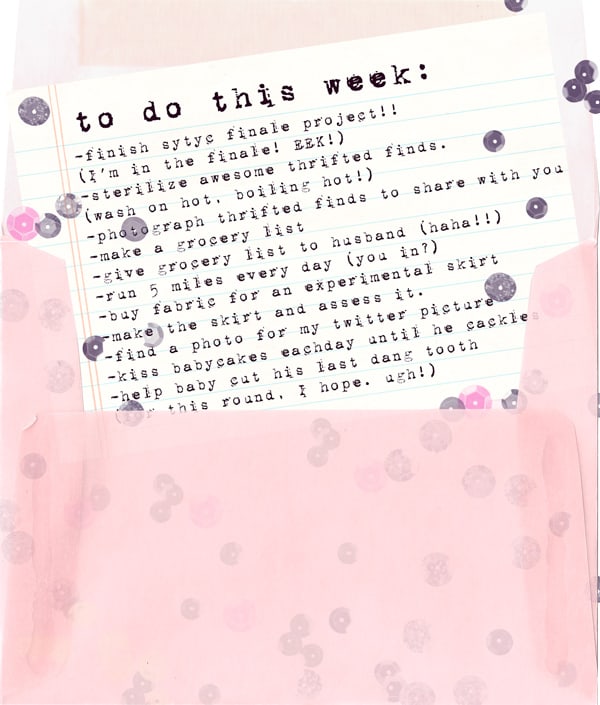 to do this week:
-finish sytyc finale project!!
(I'm in the finale! EEK!)
-sterilize awesome thrifted finds.
(wash on hot, boiling hot!)
-photograph thrifted finds to share with you
-make a grocery list
-give grocery list to husband (haha!!)
-run 5 miles every day (you in?)
-buy fabric for an experimental skirt
-make the skirt and assess it.
-find a photo for my twitter picture
-kiss babycakes eachday until he cackles
-help baby cut his last dang tooth
this round, I hope. ugh!)